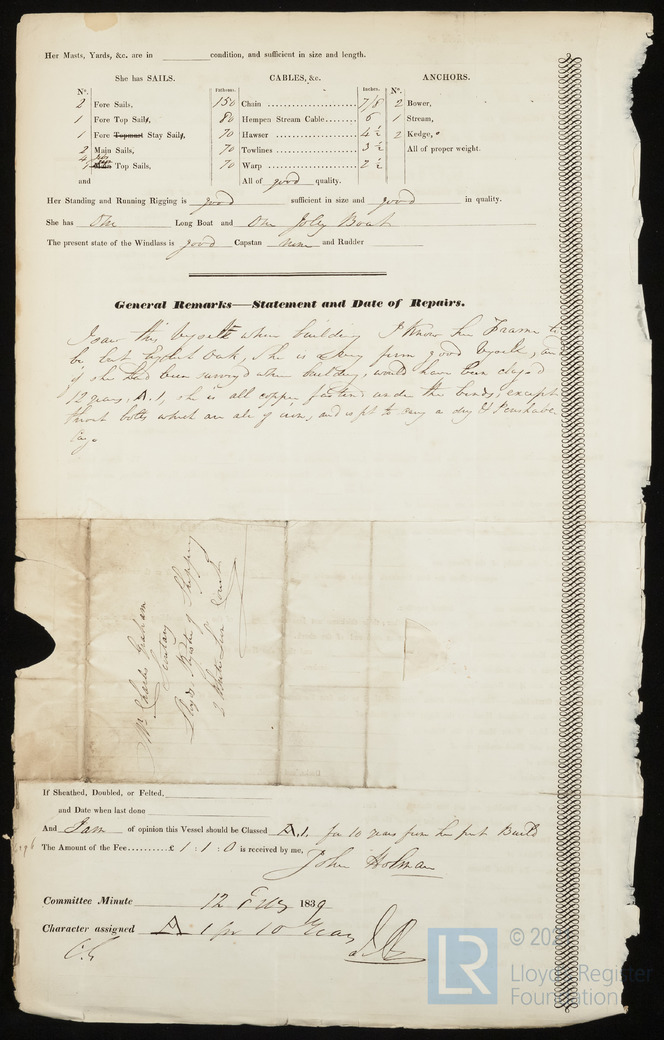 Her Masts, Yards, &c. are in condition, and sufficient in size and length.
She has SAILS. CABLES, &c. ANCHORS.
Nº. Fathoms. Inches. Nº.
2 Fore Sails, 150 Chain 7/8 2 Bower,
1 Fore Top Sails, 80 Hempen Stream Cable 6 1 Stream,
1 Fore Topmast Stay Sails, 70 Hawser 4 ½ 2 Kedge,
2 Main Sails, 70 Towlines 3 ½ All of proper weight.
4 Main Top Sails, 70 Warp 2 ½
and All of good quality.
Her Standing and Running Rigging is good sufficient in size and good in quality.
She has One Long Boat and One Joly Boat
The present state of the Windlass is good Capstan none and Rudder
General Remarks—Statement and Date of Repairs.
I saw this vessele when building I Know her Fraame to
be best Oak, she is a very firm good vessele, and
if she had been survey'd when building, would have been class'd
12 years, A.1, she is all copper fasten'd under the bends, except
throat bolts which are ale of iron, and is fit to cary a dry & Perishabe
Cago
Mr Charles Graham
Secretary
Lloyds Register of Shipping
2 White Lion Court
If Sheathed, Doubled, or Felted,
and Date when last done
And I am of opinion this Vessel should be Classed A.1. for 10 years from her first Build
The Amount of the Fee £ 1 : 1 : 0 is received by me,
John Holman
Committee Minute 12 Feby 1839
Character assigned A 1 for 10 Years
C.G
LR © 202
Lloyd's Register
Foundation